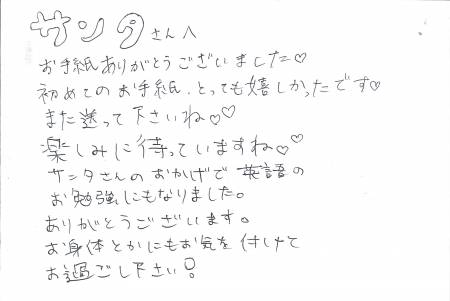 サンタさんへ
お手紙ありがとうございました♡
初めてのお手紙、とっても嬉しかったです♡
また送って下さいね♡♡
楽しみに待っていますね♡♡
サンタさんのおかげで英語の
お勉強にもなりました。
ありがとうございます。
お身体とかにもお気を付けて
お過ごし下さい!